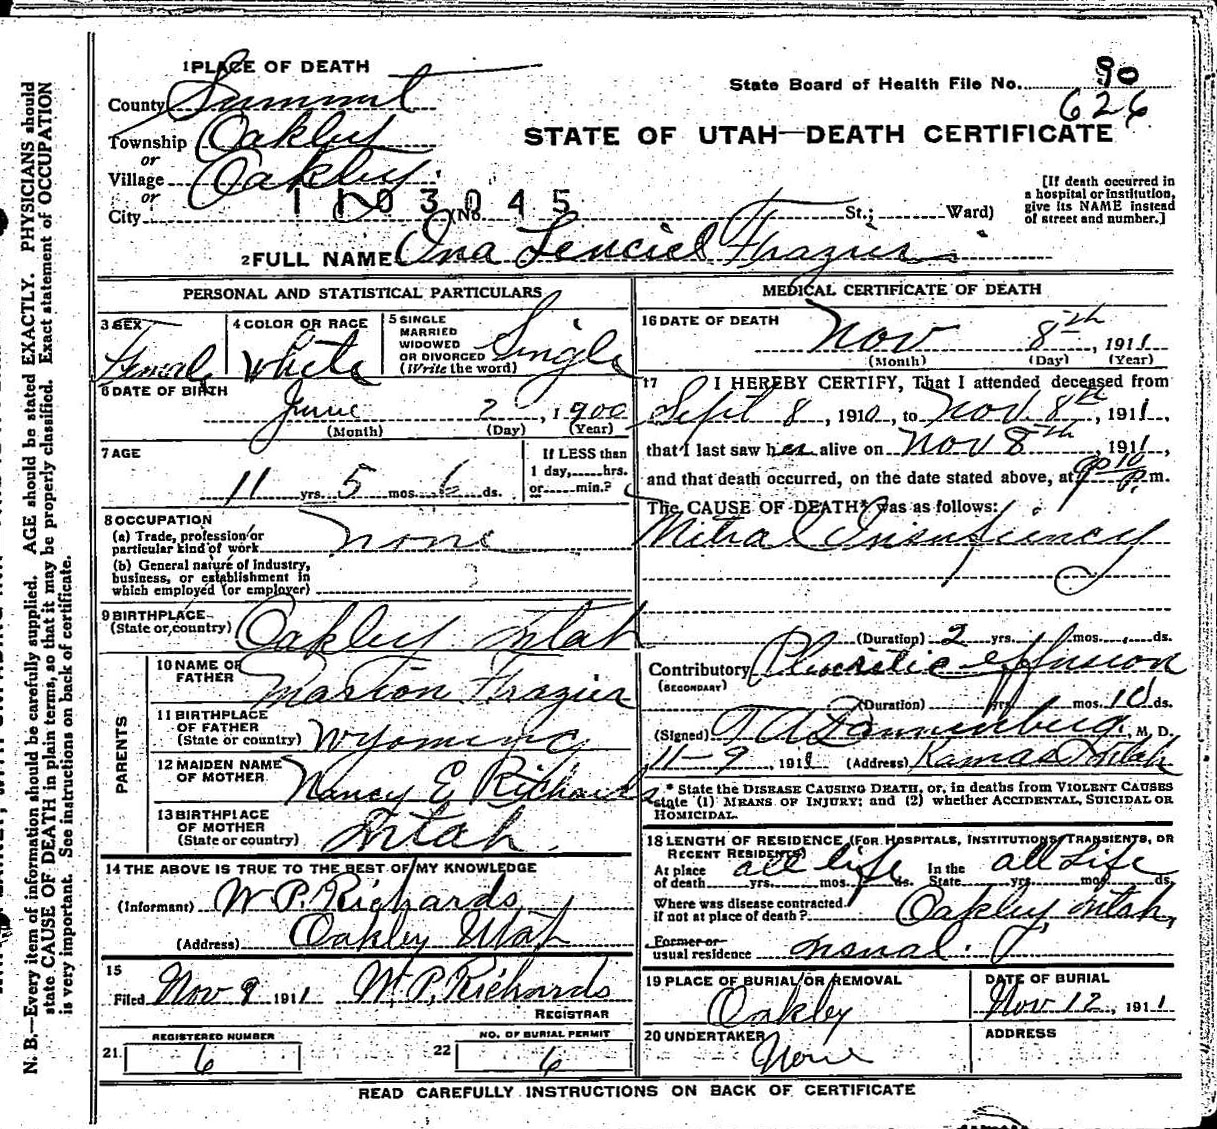 1 PLACE OF DEATH
County Summit
Township Oakley
or
Village Oakley
or
City
1103045
(No. St.; Ward)
State Board of Health File No. 90
626
STATE OF UTAH—DEATH CERTIFICATE
[If death occurred in
a hospital or institution,
give its NAME instead
of street and number.]
2 FULL NAME Ona Lenciel Frazier
PERSONAL AND STATISTICAL PARTICULARS
3 SEX
Female
4 COLOR OR RACE
White
5 SINGLE
MARRIED
WIDOWED
OR DIVORCED
(Write the word)
Single
6 DATE OF BIRTH
June 2, 1900
(Month) (Day) (Year)
7 AGE
11 yrs. 5 mos. 6 ds.
If LESS than
1 day, hrs.
or min.?
8 OCCUPATION
(a) Trade, profession or
particular kind of work none
(b) General nature of industry,
business, or establishment in
which employed (or employer)
9 BIRTHPLACE
(State or country) Oakley Utah
PARENTS
10 NAME OF
FATHER Marion Frazier
11 BIRTHPLACE
OF FATHER
(State or country) Wyoming
12 MAIDEN NAME
OF MOTHER Nancy E Richards
13 BIRTHPLACE
OF MOTHER
(State or country) Utah.
14 THE ABOVE IS TRUE TO THE BEST OF MY KNOWLEDGE
(Informant) W. P. Richards
(Address) Oakley Utah
15
Filed Nov 9 1911 W. P. Richards
REGISTRAR
REGISTERED NUMBER
21. 6
NO. OF BURIAL PERMIT
22 6
MEDICAL CERTIFICATE OF DEATH
16 DATE OF DEATH
Nov 8th, 1911
(Month) (Day) (Year)
17 I HEREBY CERTIFY, That I attended deceased from
Sept 8, 1910, to Nov. 8th, 1911,
that I last saw her alive on Nov 8th, 1911,
and that death occurred, on the date stated above, at 9 10 p.m.
The CAUSE OF DEATH* was as follows:
Mitral Insufficiency
(Duration) 2 yrs. mos. ds.
Contributory Pleuritic effusion
(SECONDARY)
(Duration) yrs. mos. 10 ds.
(Signed) T A Dannenberg, M. D.
11-9, 1911 (Address) Kamas Utah
* State the DISEASE CAUSING DEATH, or, in deaths from VIOLENT CAUSES
state (1) MEANS OF INJURY; and (2) whether ACCIDENTAL, SUICIDAL OR
HOMICIDAL.
18 LENGTH OF RESIDENCE (FOR HOSPITALS, INSTITUTIONS, TRANSIENTS, OR
RECENT RESIDENTS)
At place
of death all life yrs. mos. ds.
In the
State all Life yrs. mos. ds.
Where was disease contracted
if not at place of death? Oakley, Utah,
Former or
usual residence usual.
19 PLACE OF BURIAL OR REMOVAL
Oakley
DATE OF BURIAL
Nov 12, 1911
20 UNDERTAKER
None
ADDRESS
READ CAREFULLY INSTRUCTIONS ON BACK OF CERTIFICATE
N. B.—Every item of information should be carefully supplied. AGE should be stated EXACTLY. PHYSICIANS should
state CAUSE OF DEATH in plain terms, so that it may be properly classified. Exact statement of OCCUPATION
is very important. See instructions on back of certificate.